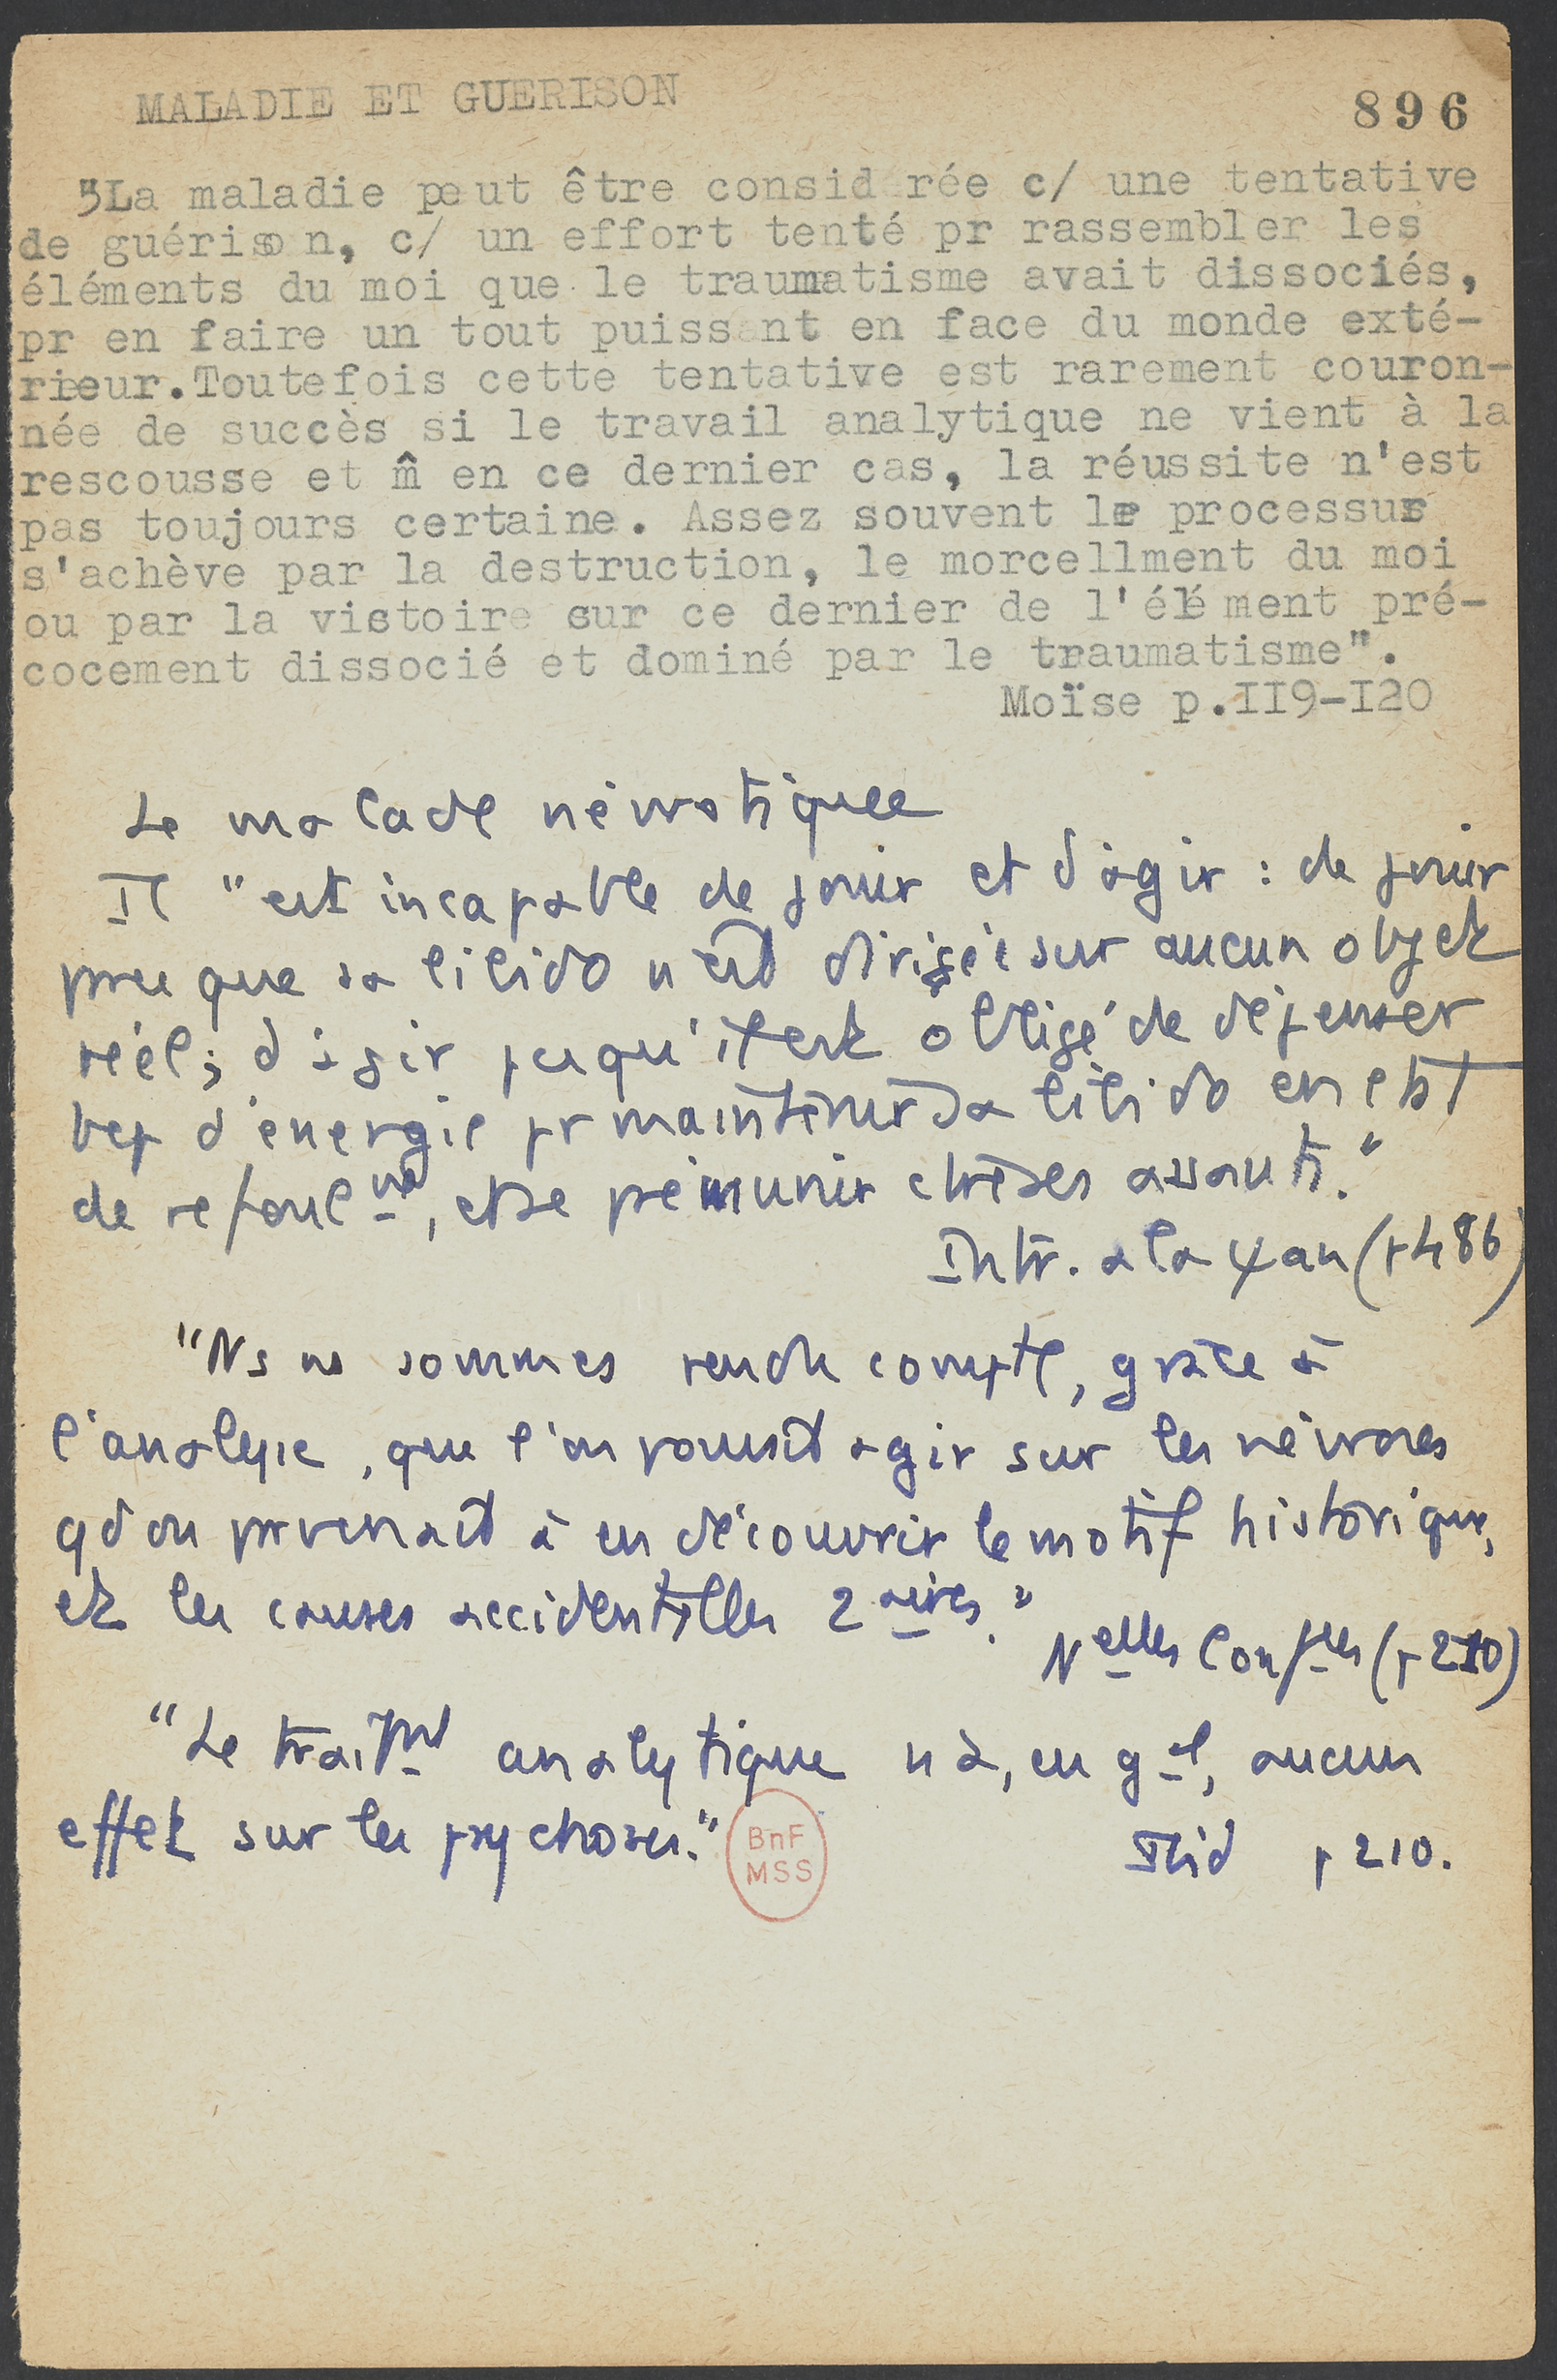 MALADIE ET GUERISON
896
"La maladie peut être considrée c/ une tentative
de guérison, c/ un effort tenté pr rassembler les
éléments du moi que le traumatisme avait dissociés,
pr en faire un tout puissant en face du monde exté-
rieur.Toutefois cette tentative est rarement couron-
née de succès si le travail analytique ne vient à la
rescousse et m̂ en ce dernier cas, la réussite n'est
pas toujours certaine. Assez souvent le processus
s'achève par la destruction, le morcellment du moi
ou par la victoire sur ce dernier de l'élément pré-
cocement dissocié et dominé par le traumatisme".
Moïse p.II9-I20
Le malade névrotique
Il "est incapable de jouir et d'agir : de jouir
pce que sa libido n'est dirigée sur aucun objet
réel; d'agir pcequ'il est obligé de dépenser
bcp d'énergie pr maintenir sa libido en état
de refoulmt, et se prémunir ctre ses assauts."
Intr. a la ψan (p 486)
"Ns ns sommes rendu compte, grâce à
l'analyse, que l'on pouvait agir sur les névroses
qd on parvenait à en découvrir le motif historique,
et les causes accidentelles 2aires."
Nelles Confces (p 210)
"Le traitmt analytique n'a, en gal, aucun
effet sur les psychoses."
Ibid p 210.
BnF
MSS